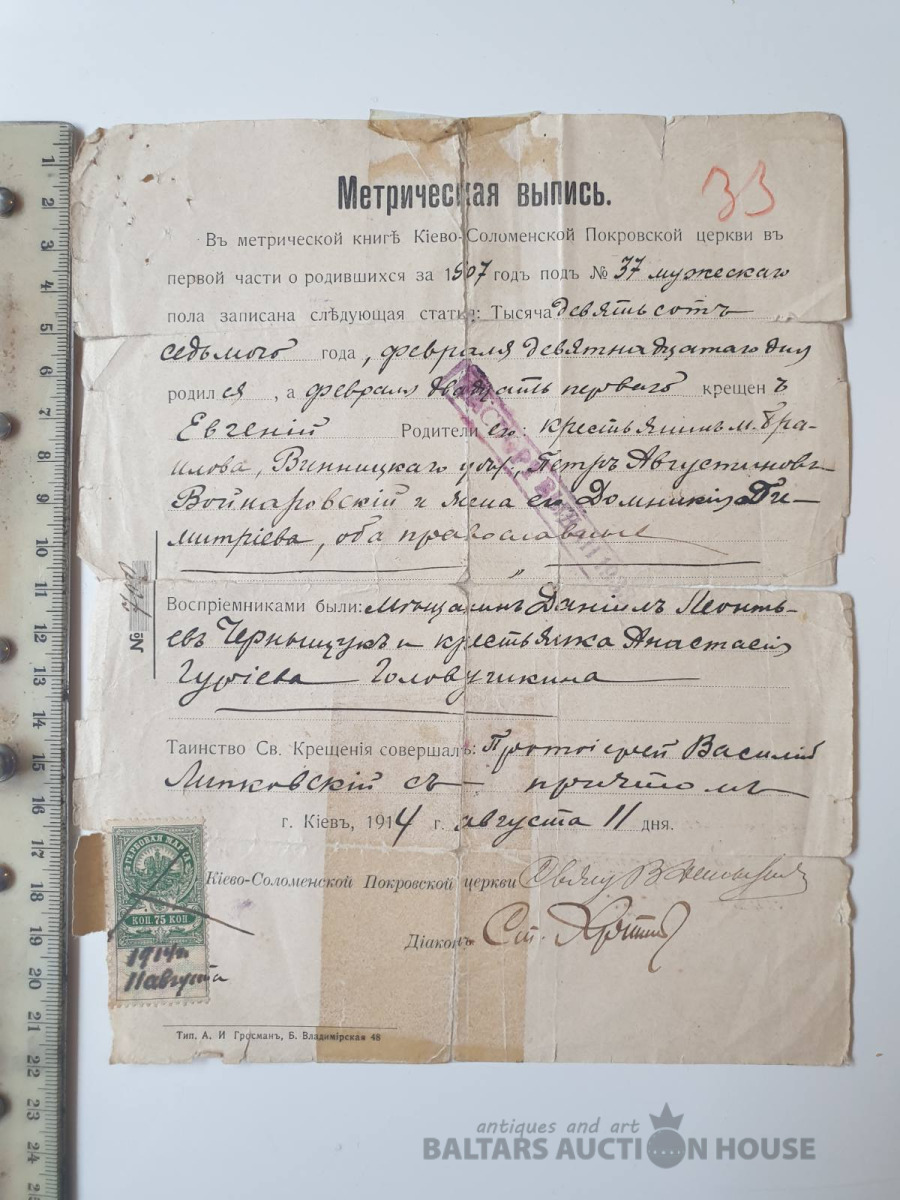 33
Метрическая выпись.
Въ метрической книгѣ Кіево-Соломенской Покровской церкви въ
первой части о родившихся за 1907 годъ подъ № 37 мужескаго
пола записана слѣдующая статья: Тысяча девятьсотъ
седьмого года, февраля девятнадцатаго дня
родился, а февраля двадцать перваго крещенъ
Евгеній Родители его: крестьянинъ м. Бра-
илова, Винницкаго уѣзда, Петръ Августиновъ
Войнаровскій и жена его Домникія Ди-
митріева, оба православные
№
Воспріемниками были: мѣщанинъ Даніилъ Леонть-
евъ Чернышукъ и крестьянка Анастасія
Гуріева
Таинство Св. Крещенія совершалъ: Протоіерей Василій
Липковскій съ причтомъ
г. Кіевъ, 1914 г. августа 11 дня.
Кіево-Соломенской Покровской церкви Свящ.
Діаконъ Ст.
ГЕРБОВАЯ МАРКА
КОП 75 КОП
1914 г.
11 августа
Тип. А. И Гросманъ, Б. Владимірская 48
1
2
3
4
5
6
7
8
9
10
11
12
13
14
15
16
17
18
19
20
21
22
23
24
antiques and art
BALTARS AUCTION HOUSE